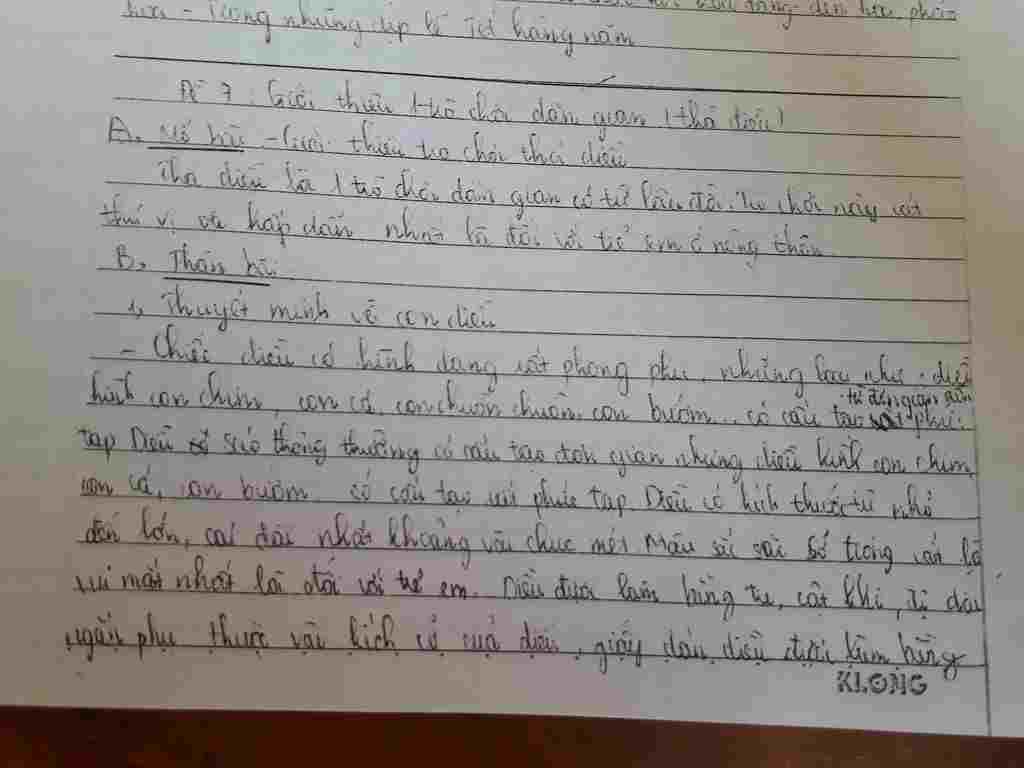 trong những dịp lễ Tết hàng năm
Đề 7: Giới thiệu 1 trò chơi dân gian (thả diều)
A, Mở bài - Giới thiệu trò chơi thả diều
Thả diều là 1 trò chơi dân gian có từ lâu đời. Trò chơi này rất
thú vị và hấp dẫn nhất là đối với trẻ em ở nông thôn
B, Thân bài
1, Thuyết minh về con diều
- Chiếc diều có hình dạng rất phong phú, những loại như diều
từ đơn giản đến
hình con chim, con cá, con chuồn chuồn, con bướm... có cấu tạo phức
tạp Diều sáo thông thường có cấu tạo đơn giản nhưng diều hình con chim,
con cá, con bướm có cấu tạo rất phức tạp. Diều có kích thước từ nhỏ
đến lớn, cái dài nhất khoảng vài chục mét. Màu sắc sặc sỡ trông
vui mắt nhất là đối với trẻ em. Diều được làm bằng tre,
ngắn phụ thuộc vào kích cỡ của diều, giấy dán diều được làm bằng
KLONG